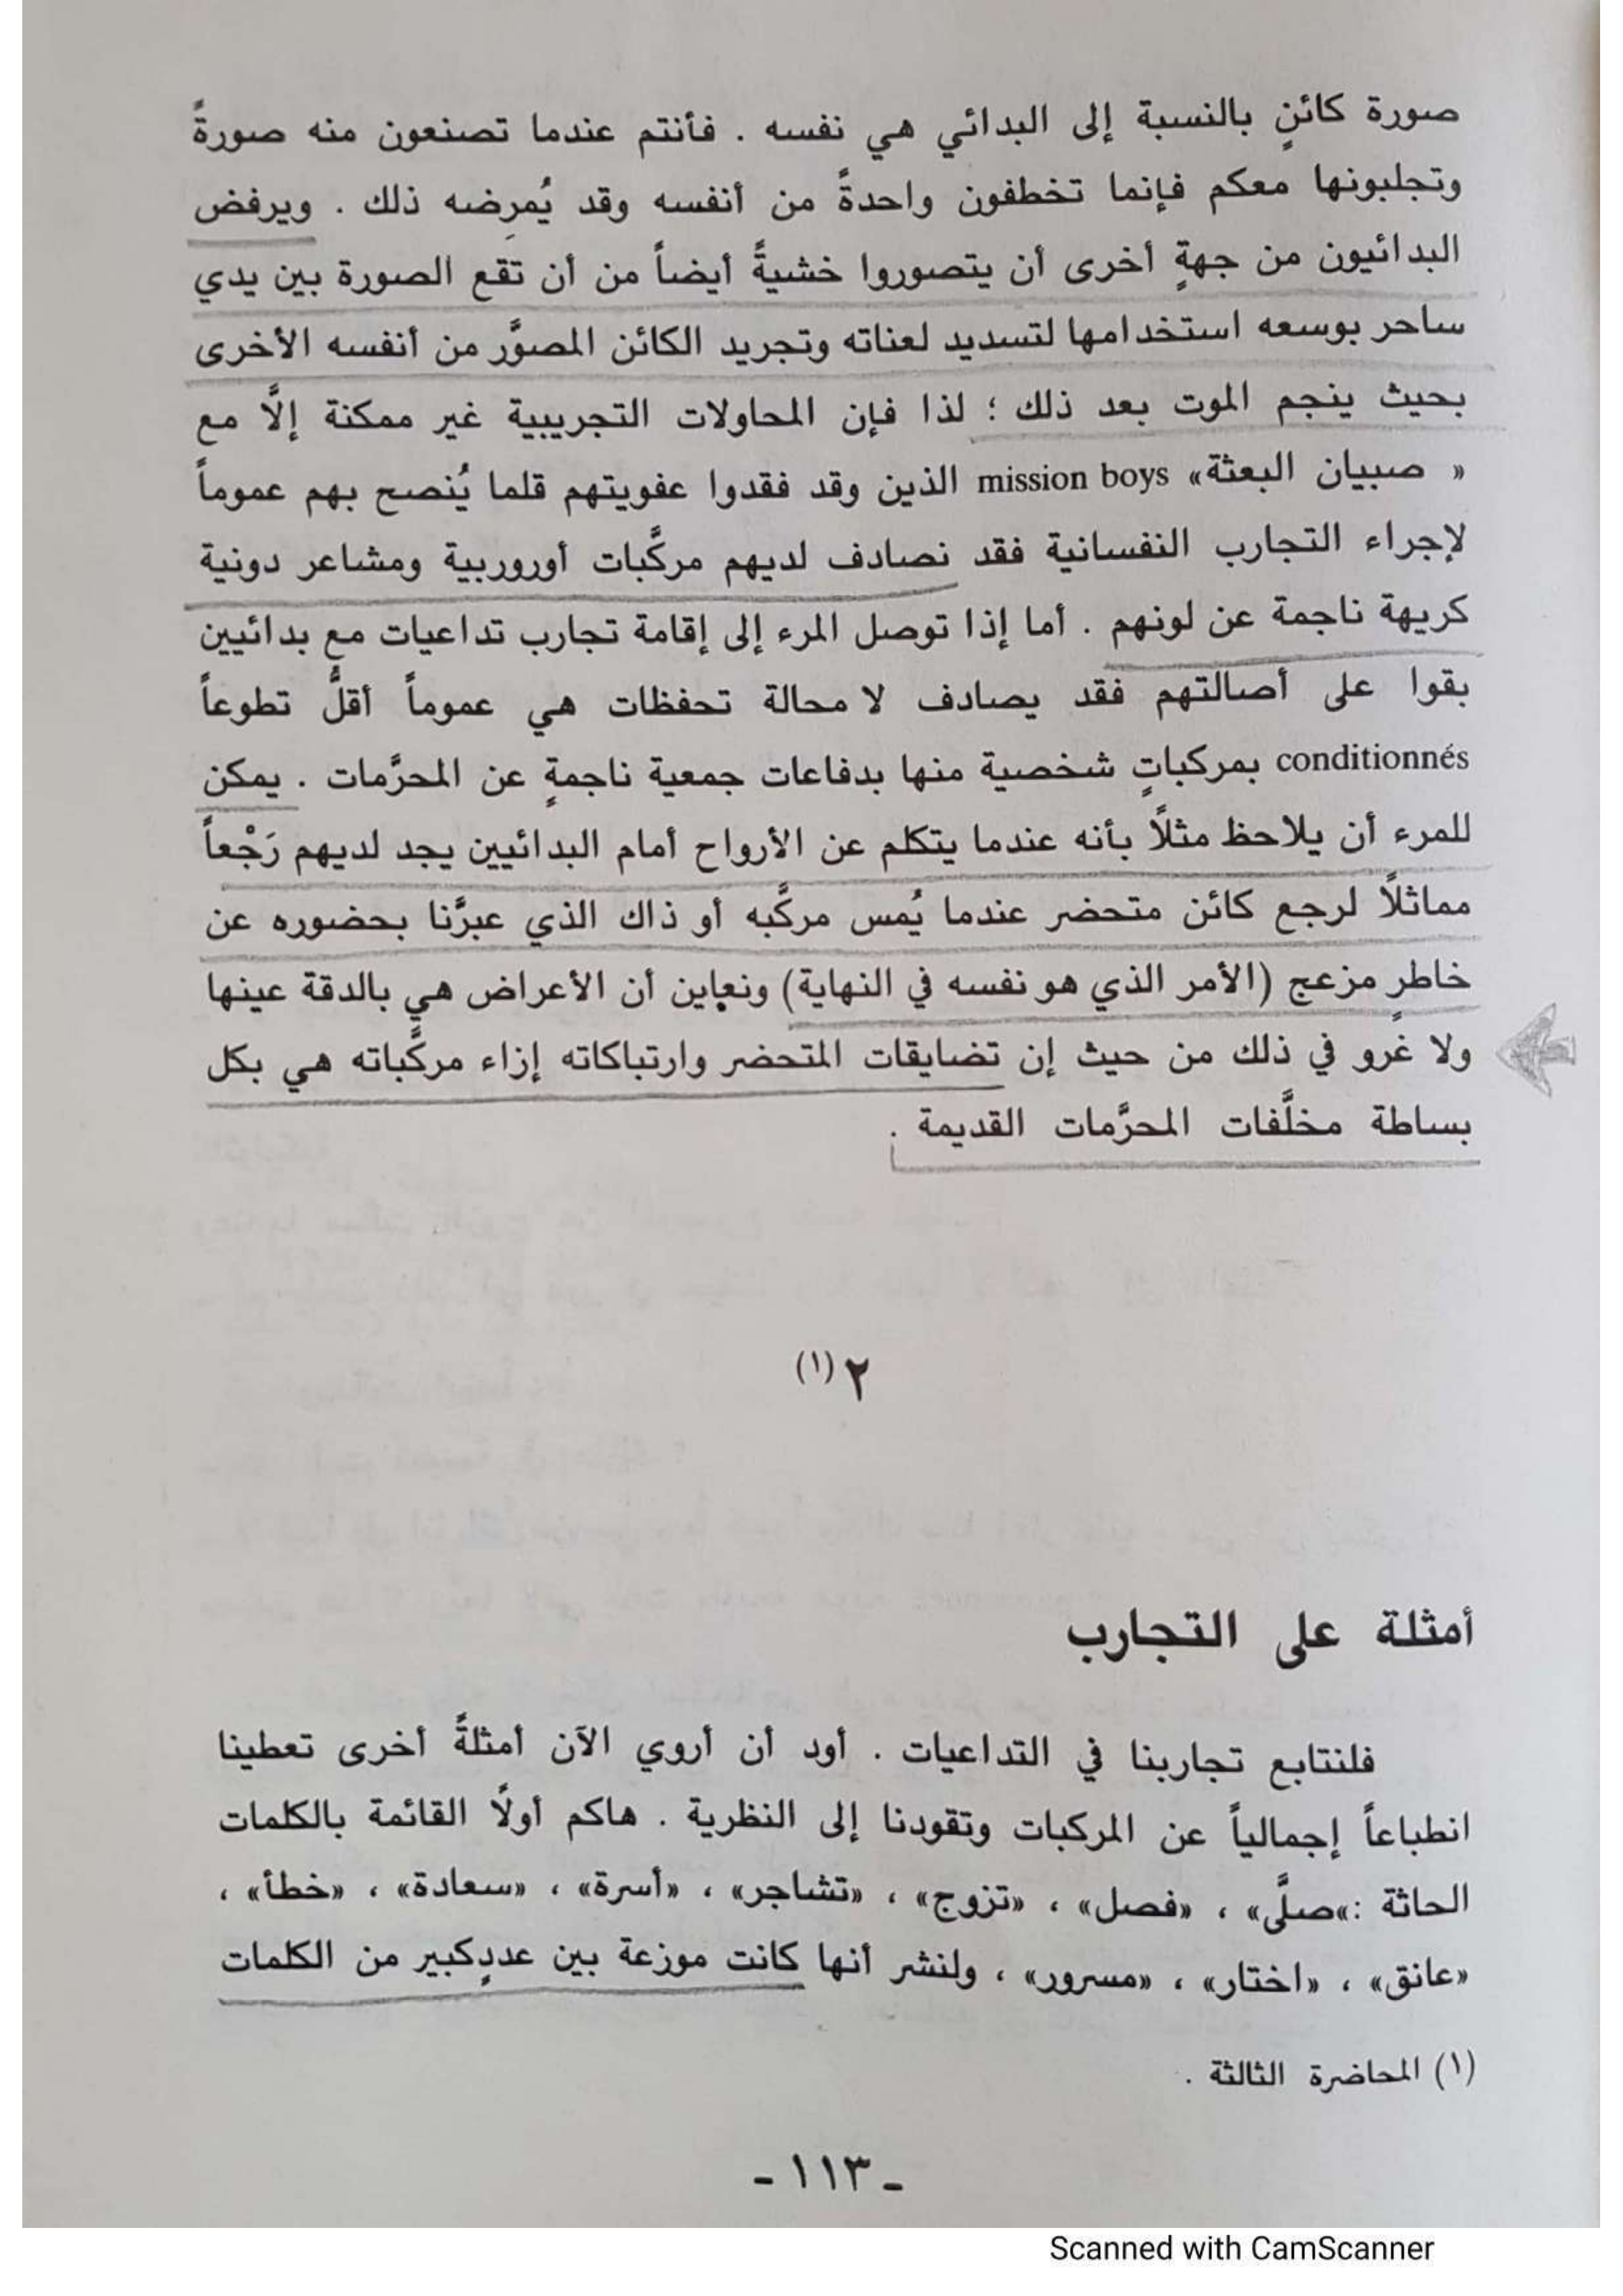 صورة كائنٍ بالنسبة إلى البدائي هي نفسه . فأنتم عندما تصنعون منه صورةً
وتجلبونها معكم فإنما تخطفون واحدةً من أنفسه وقد يُمرِضه ذلك . ويرفض
البدائيون من جهةٍ أخرى أن يتصوروا خشيةً أيضاً من أن تقع الصورة بين يدي
ساحر بوسعه استخدامها لتسديد لعناته وتجريد الكائن المصوَّر من أنفسه الأخرى
بحيث ينجم الموت بعد ذلك ؛ لذا فإن المحاولات التجريبية غير ممكنة إلاَّ مع
« صبيان البعثة» mission boys الذين وقد فقدوا عفويتهم قلما يُنصح بهم عموماً
لإجراء التجارب النفسانية فقد نصادف لديهم مركَّبات أوروربية ومشاعر دونية
كريهة ناجمة عن لونهم . أما إذا توصل المرء إلى إقامة تجارب تداعيات مع بدائيين
بقوا على أصالتهم فقد يصادف لا محالة تحفظات هي عموماً أقلُّ تطوعاً
conditionnés بمركباتٍ شخصية منها بدفاعات جمعية ناجمةٍ عن المحرَّمات . يمكن
للمرء أن يلاحظ مثلاً بأنه عندما يتكلم عن الأرواح أمام البدائيين يجد لديهم رَجْعاً
مماثلاً لرجع كائن متحضر عندما يُمس مركَّبه أو ذاك الذي عبرَّنا بحضوره عن
خاطرٍ مزعج (الأمر الذي هو نفسه في النهاية) ونعاين أن الأعراض هي بالدقة عينها
ولا غرو في ذلك من حيث إن تضايقات المتحضر وارتباكاته إزاء مركَّباته هي بكل
بساطة مخلَّفات المحرَّمات القديمة .
٢ (١)
أمثلة على التجارب
فلنتابع تجاربنا في التداعيات . أود أن أروي الآن أمثلةً أخرى تعطينا
انطباعاً إجمالياً عن المركبات وتقودنا إلى النظرية . هاكم أولاً القائمة بالكلمات
الحاثة :»صلَّى» ، «فصل» ، «تزوج» ، «تشاجر» ، «أسرة» ، «سعادة» ، «خطأ» ،
«عانق» ، «اختار» ، «مسرور» ، ولنشر أنها كانت موزعة بين عددٍكبير من الكلمات
(١) المحاضرة الثالثة .
- ١١٣ -
Scanned with CamScanner